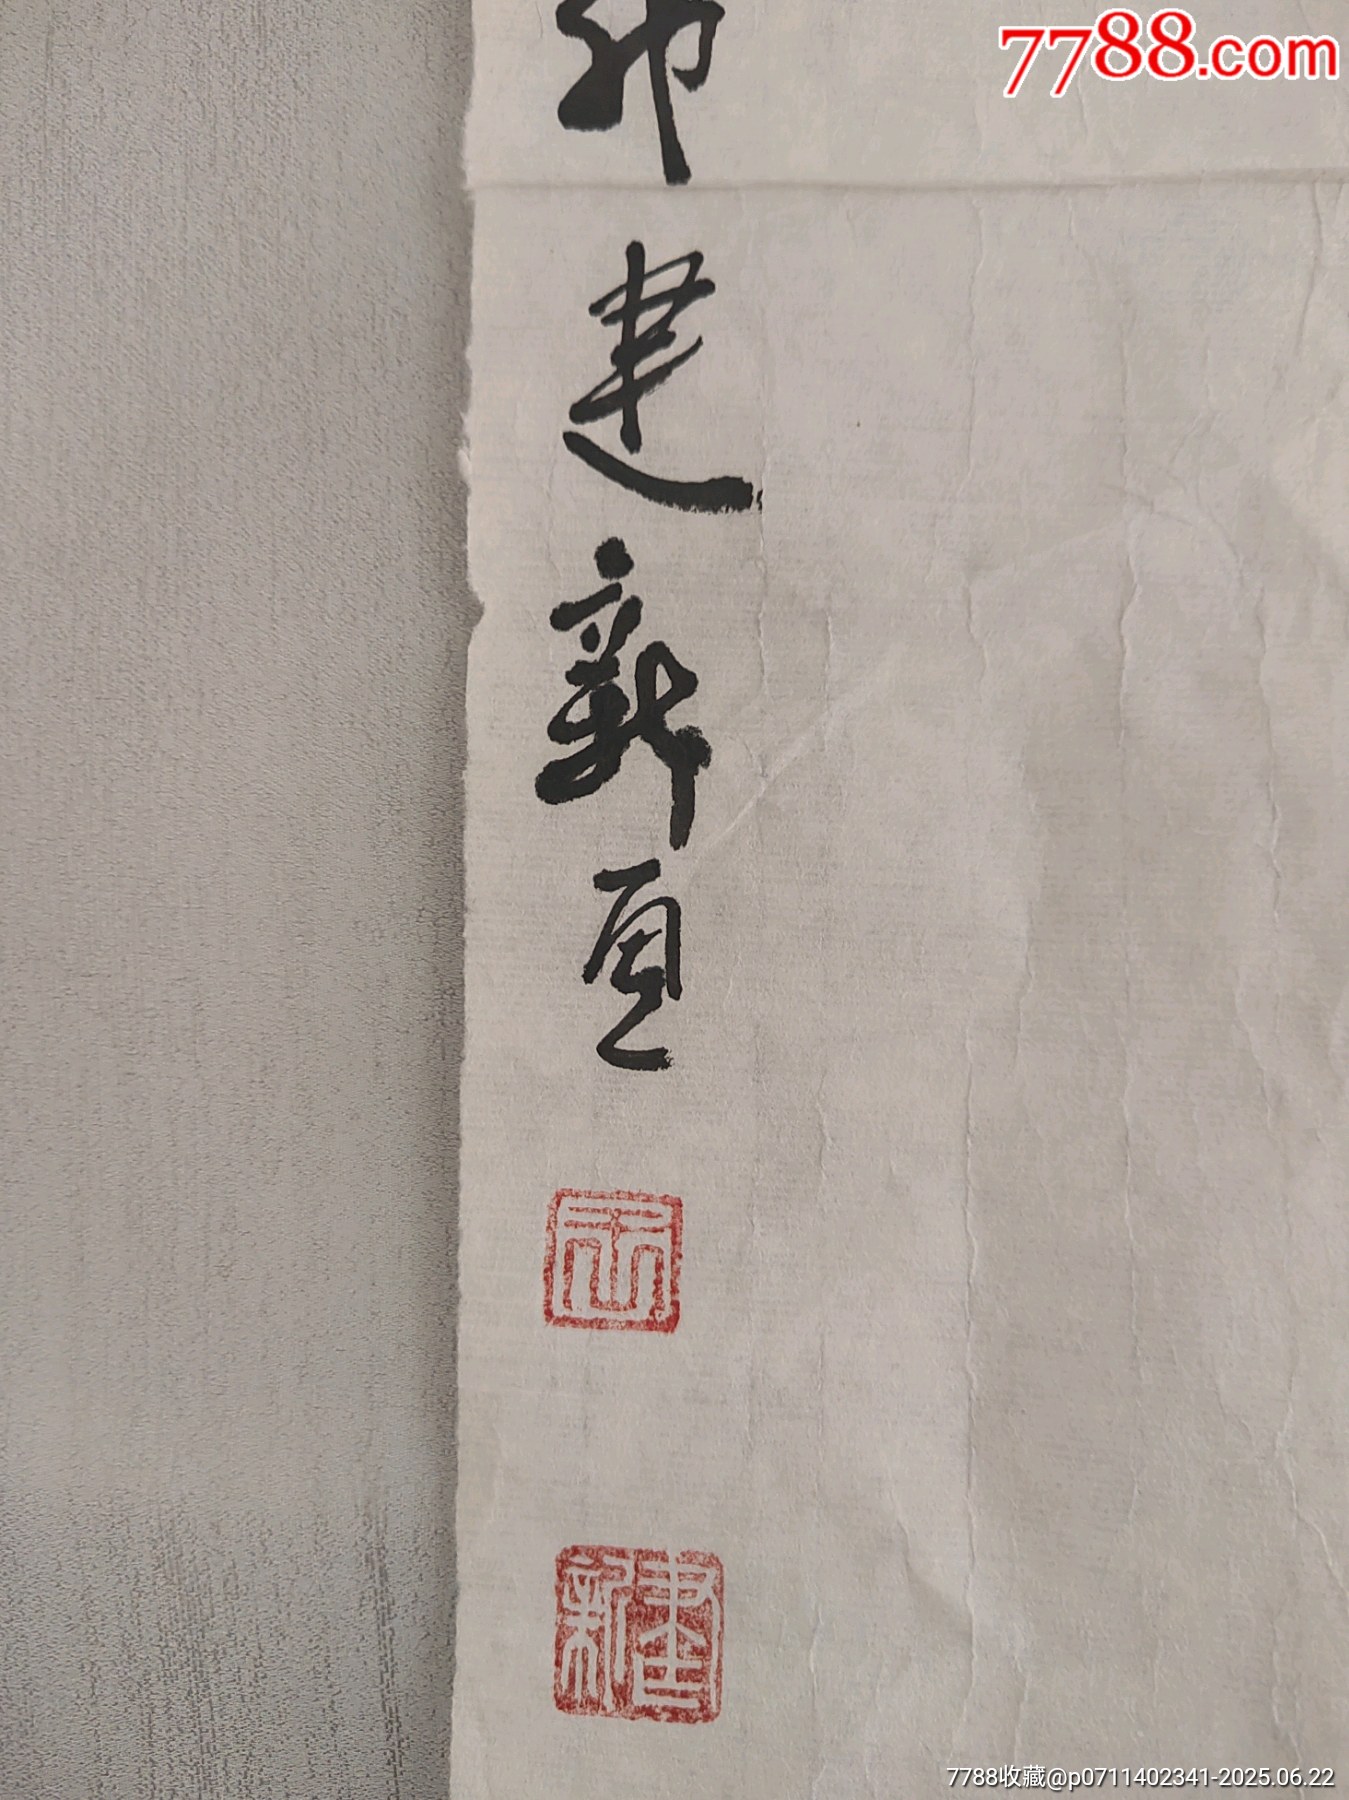 7788.com
卯
建
新
建新
7788收藏@p0711402341-2025.06.22